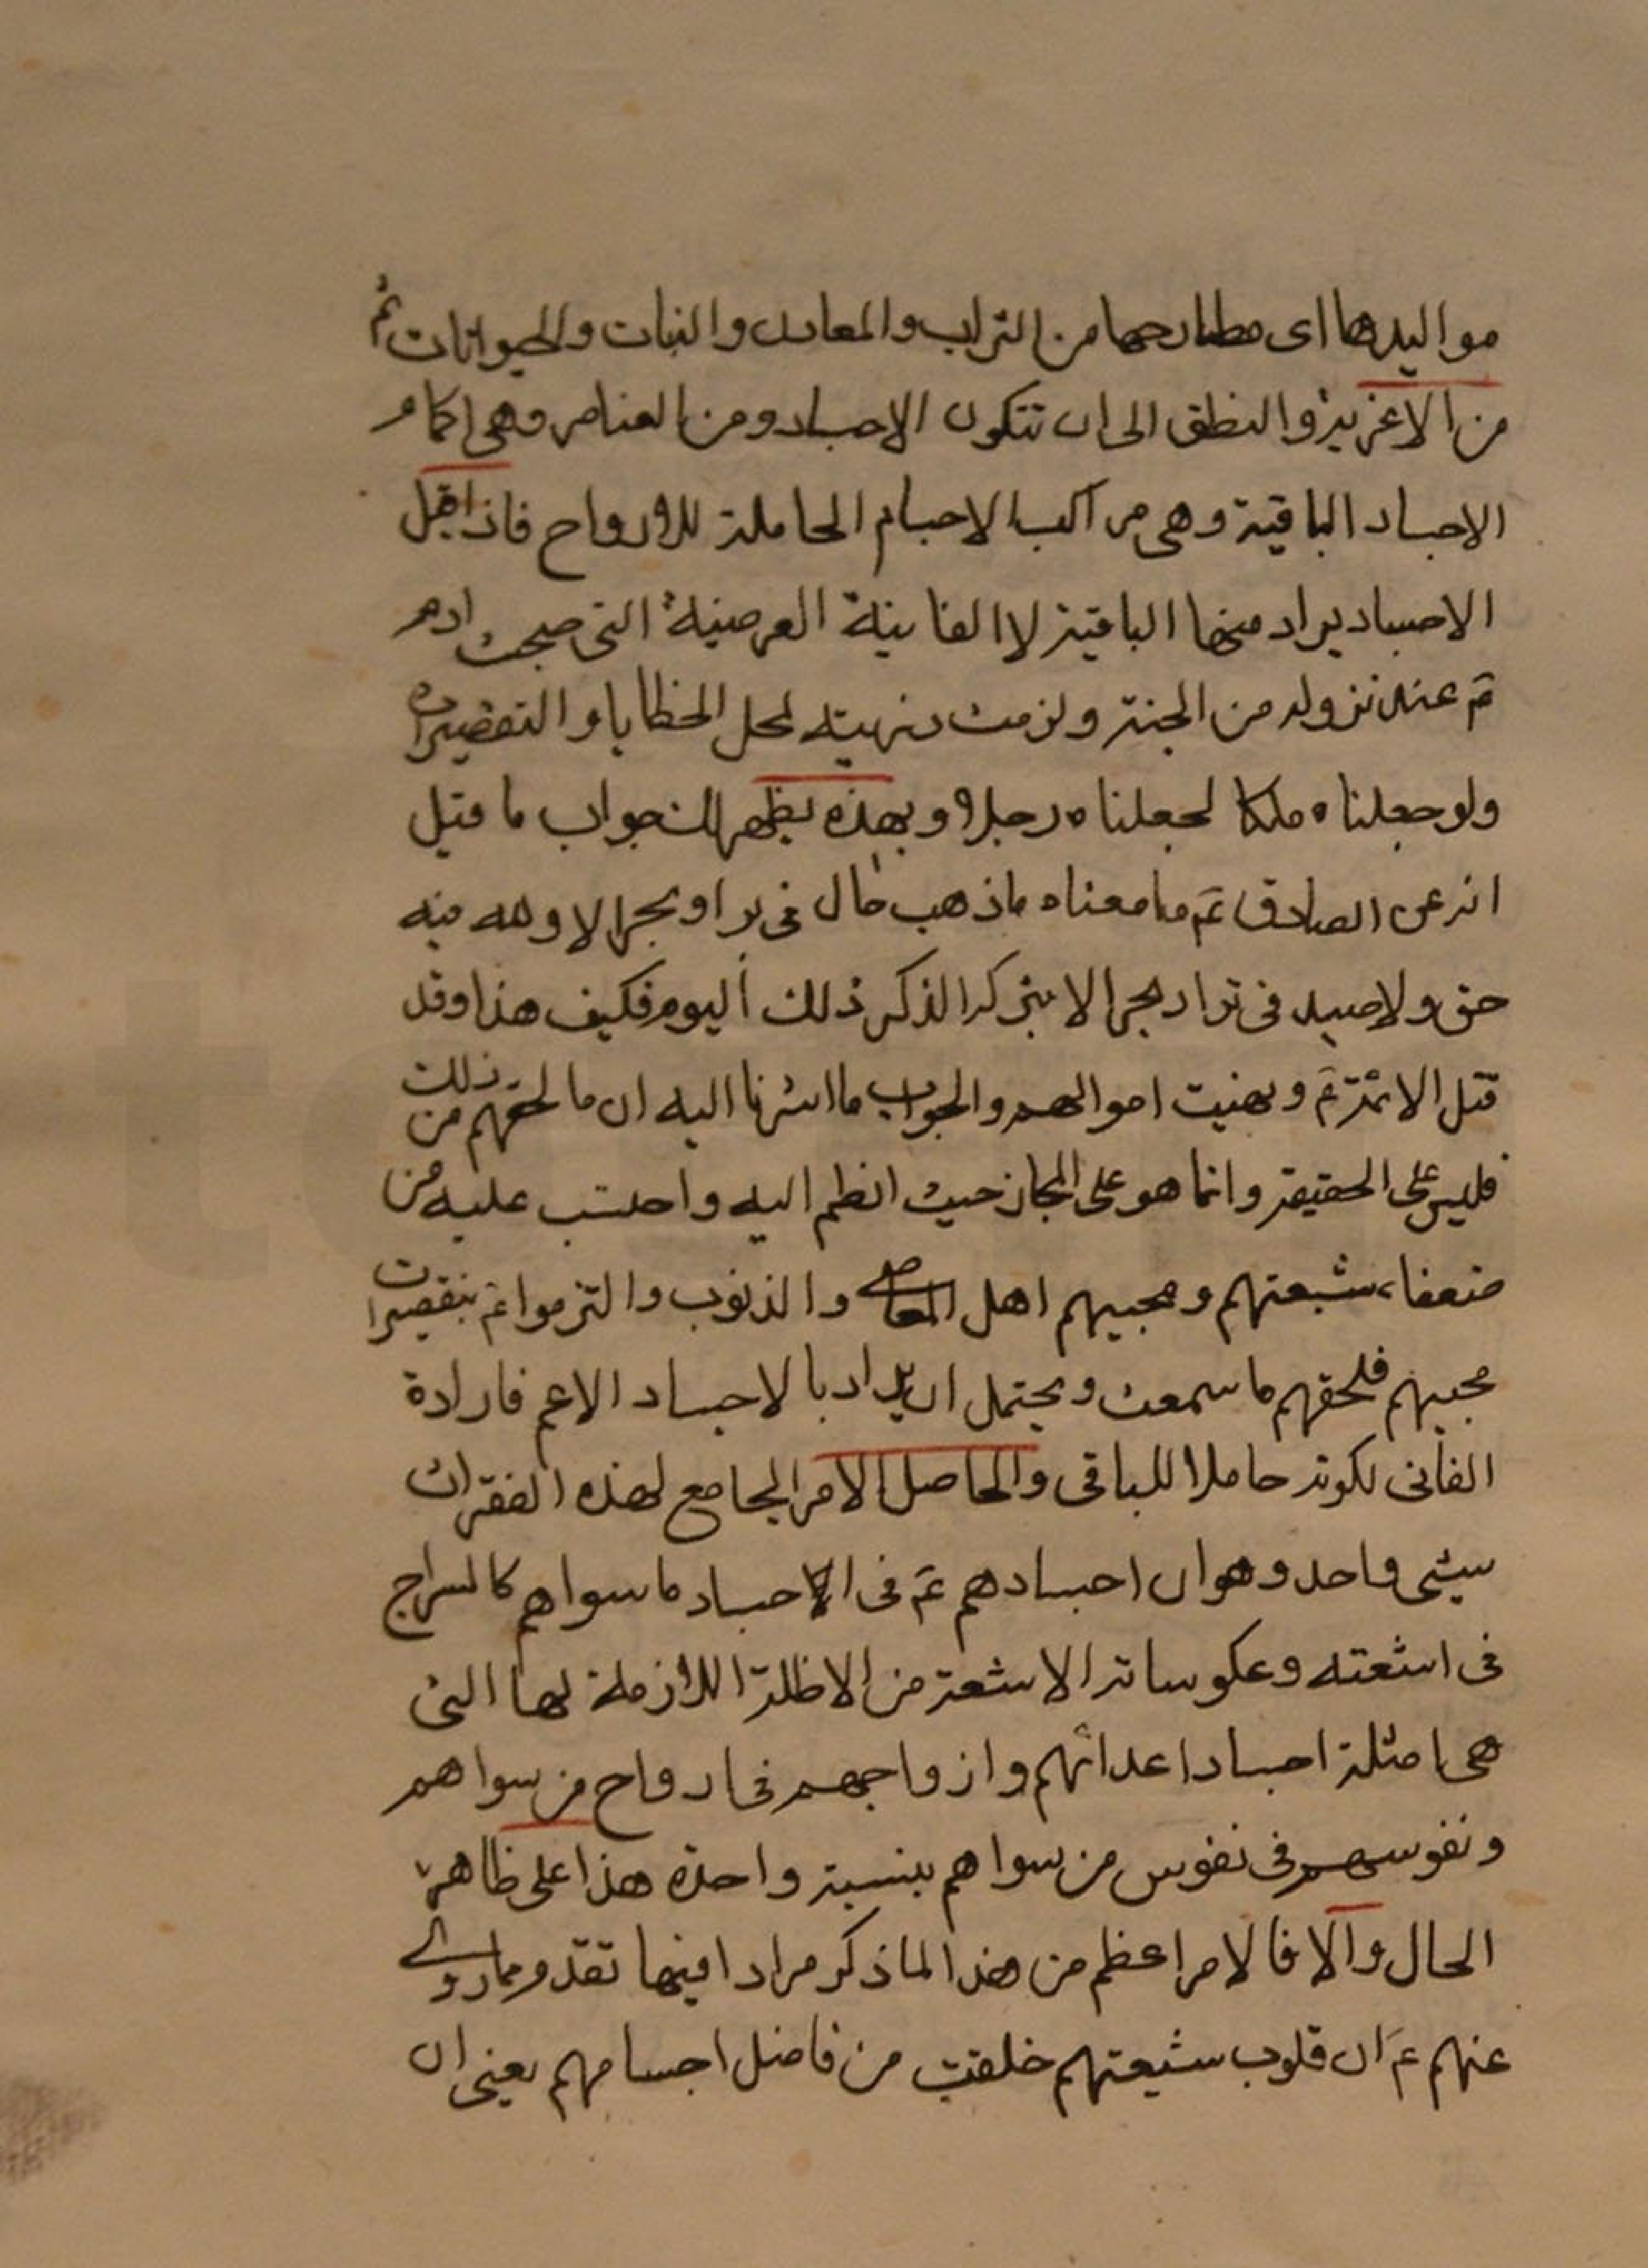 مواليدها اى مطارحها من التراب والمعادن والنبات والحيوانات ثم
من الاغزيۀ والنطق الى ان تتكون الاجساد ومن العناصر وهى اكمام
الاجساد الباقية وهى مراكب الاجسام الحاملة للارواح فاذا قيل
الاجساد يراد منها الباقية لا الفانية العرضية التى صحبت ادم
ع عند نزوله من الجنة ولزمت ذريته لمحل الخطايا والتقصيرات
ولو جعلناه ملكا لجعلناه رجلا وبهذه يظهر لك جواب ما قيل
انه عن الصادق ع ما معناه ماذهب مال فى بر او بحر الا ولله فيه
حق ولا صيد فى بر او بحر الا بتركه الذكر ذلك اليوم فكيف هذا وقد
قتل الائمة ع ونهبت اموالهم والجواب ما اشرنا اليه ان ما لحقهم من ذلك
فليس على الحقيقة وانما هو على المجاز حيث انظم اليه واحتسب عليه من
ضعفاء شيعتهم ومحبيهم اهل المعاصى والذنوب والتزموا ع بتقصيرات
محبيهم فلحقهم ما سمعت ويحتمل ان يراد بالاجساد الاعم فارادة
الفانى لكونه حاملا للباقى والحاصل الامر الجامع لهذه الفقرات
شيئى واحد وهو ان اجسادهم ع فى الاجساد ما سواهم كالسراج
فى اشعته وعكوسات الاشعة من الاظلة اللازمة لها التى
هى امثلة اجساد اعدائهم وازواجهم فى ارواح من سواهم
ونفوسهم فى نفوس من سواهم بنسبة واحدة هذا على ظاهر
الحال والا فالامر اعظم من هذا لما ذكر مرارا فيما تقدم مما روى
عنهم ع ان قلوب شيعتهم خلقت من فاضل اجسامهم يعنى ان